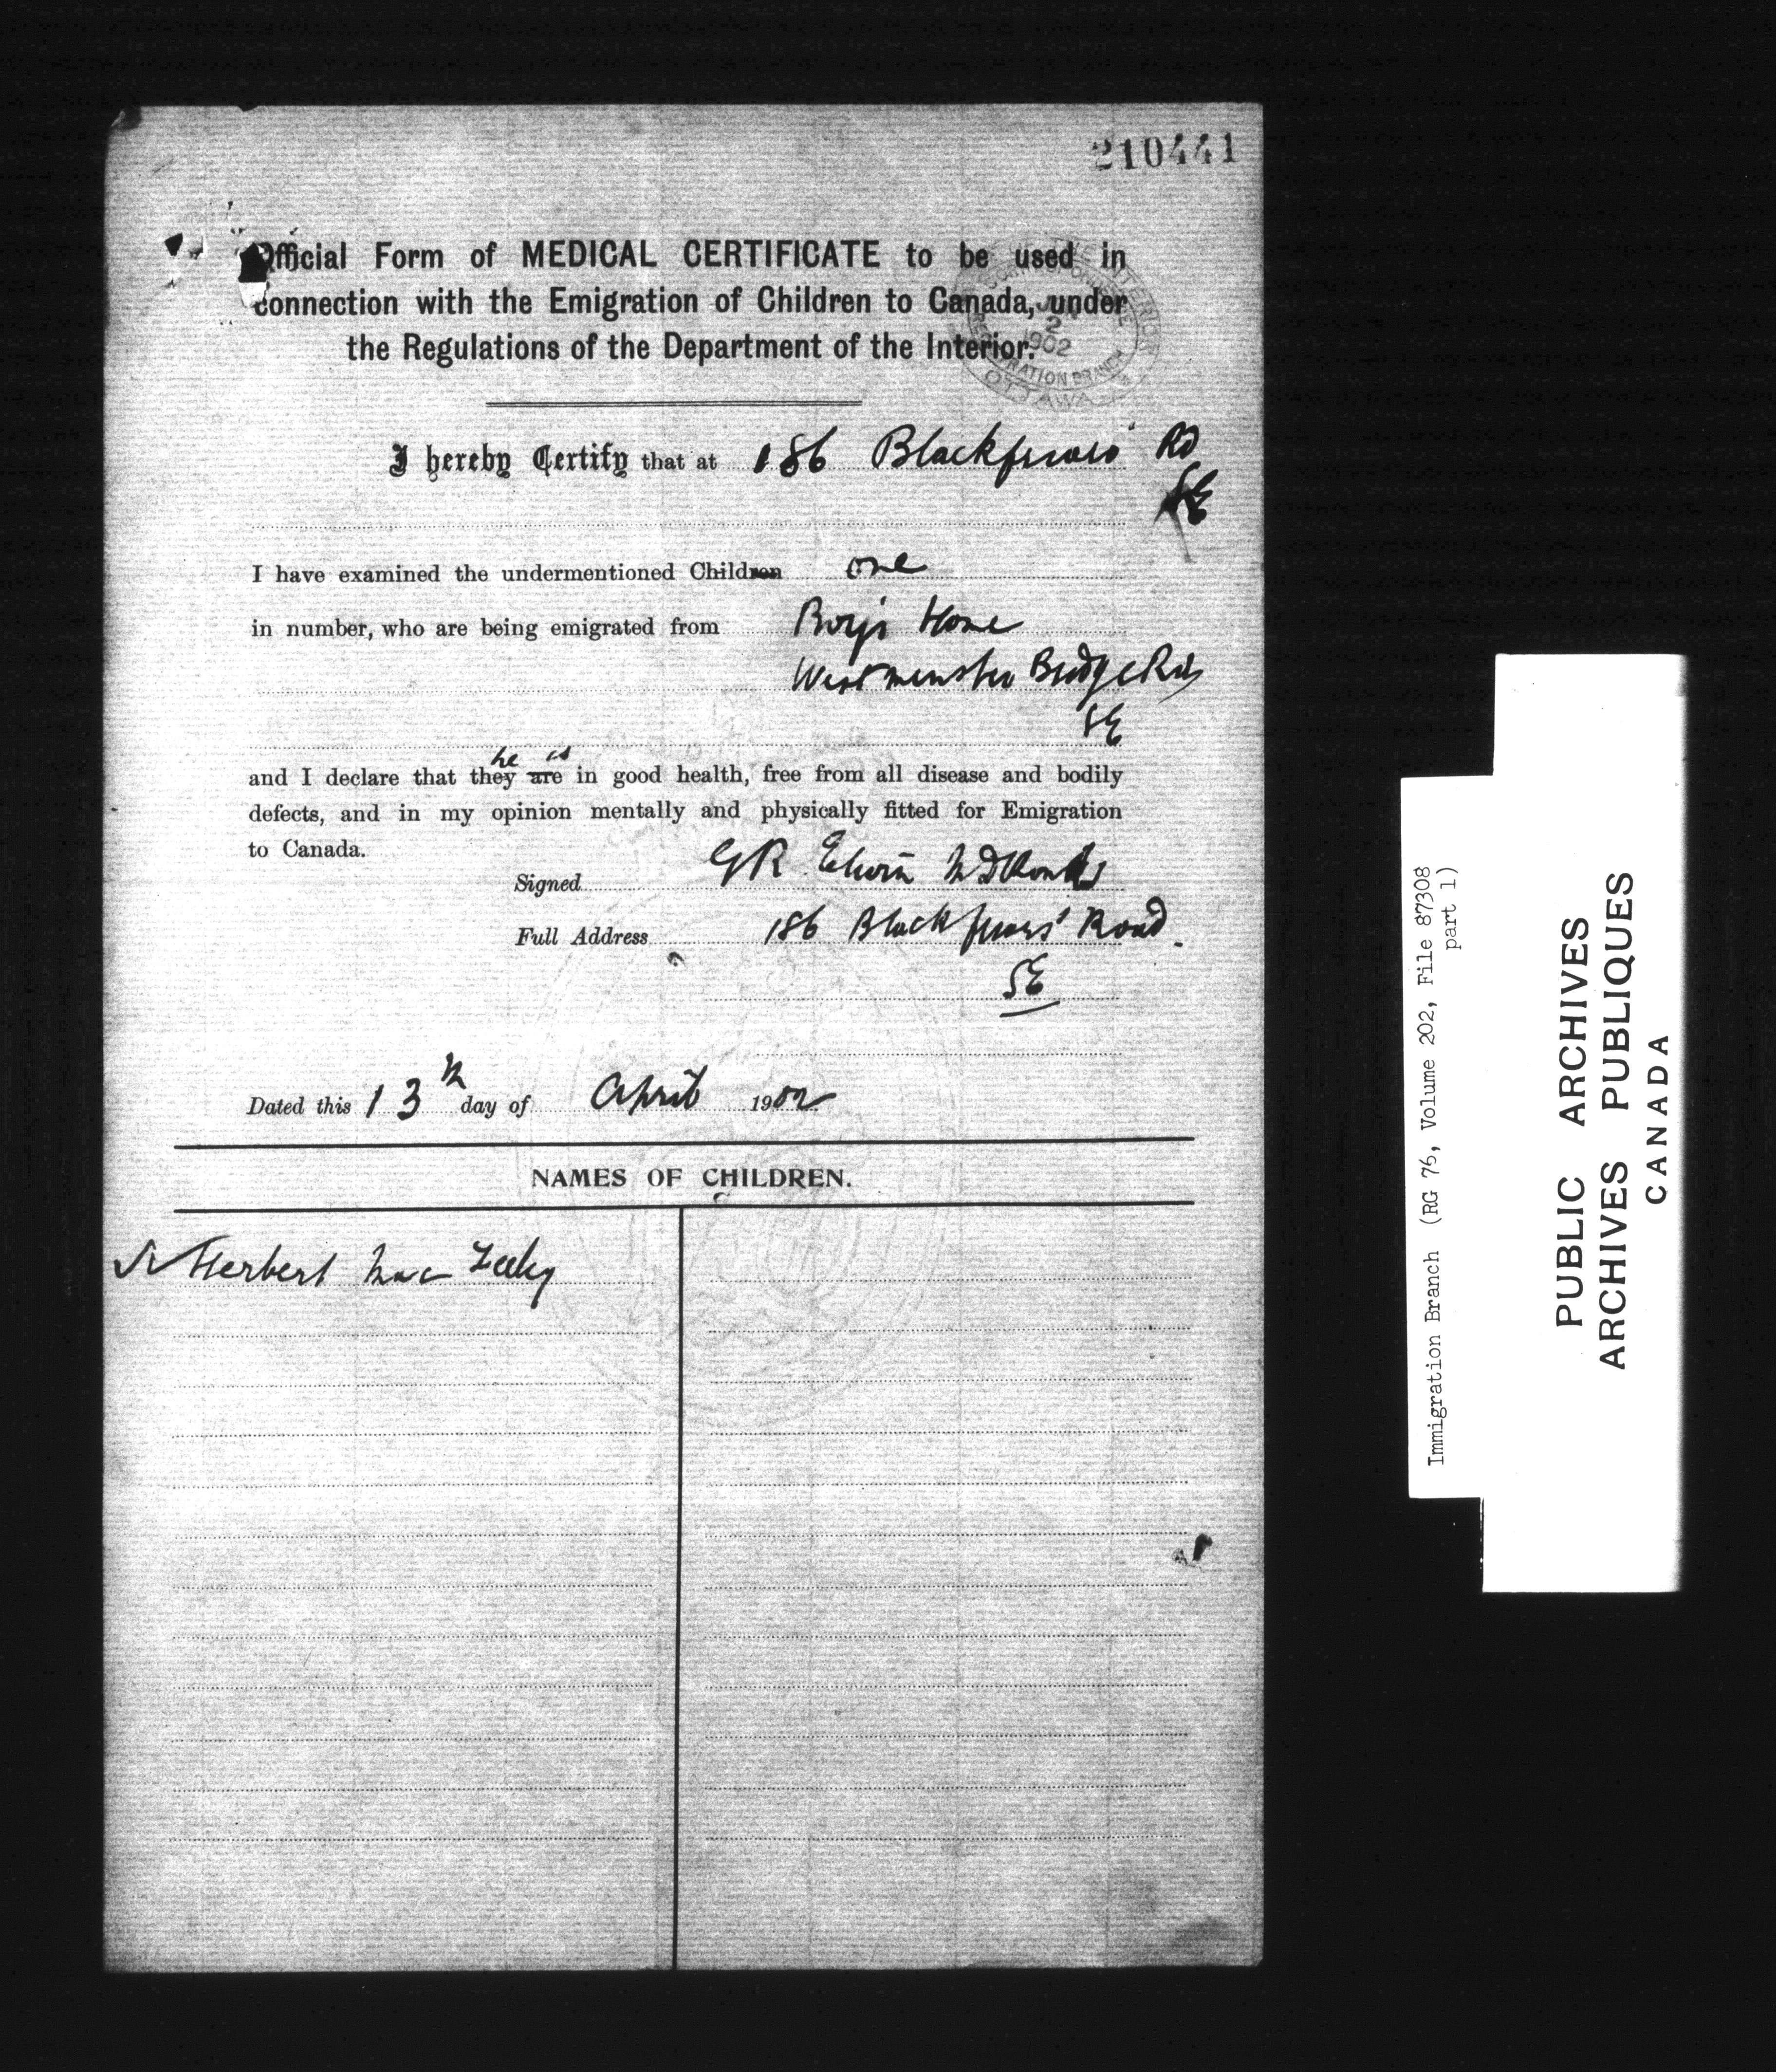 210441
Official Form of MEDICAL CERTIFICATE to be used in
connection with the Emigration of Children to Canada, under
the Regulations of the Department of the Interior.
2
1902
OTTAWA
I hereby Certify that at 186 Blackfriars' Rd
SE
I have examined the undermentioned Children one
in number, who are being emigrated from Boys Home
Westminster Bridge Rd
SE
he is
and I declare that they are in good health, free from all disease and bodily
defects, and in my opinion mentally and physically fitted for Emigration
to Canada.
Signed GR Edwin
Full Address 186 Blackfriars' Road.
SE
Dated this 13th day of April 1902
NAMES OF CHILDREN.
Herbert Mac
Immigration Branch (RG 76, Volume 202, File 87308
part 1)
PUBLIC ARCHIVES
ARCHIVES PUBLIQUES
CANADA